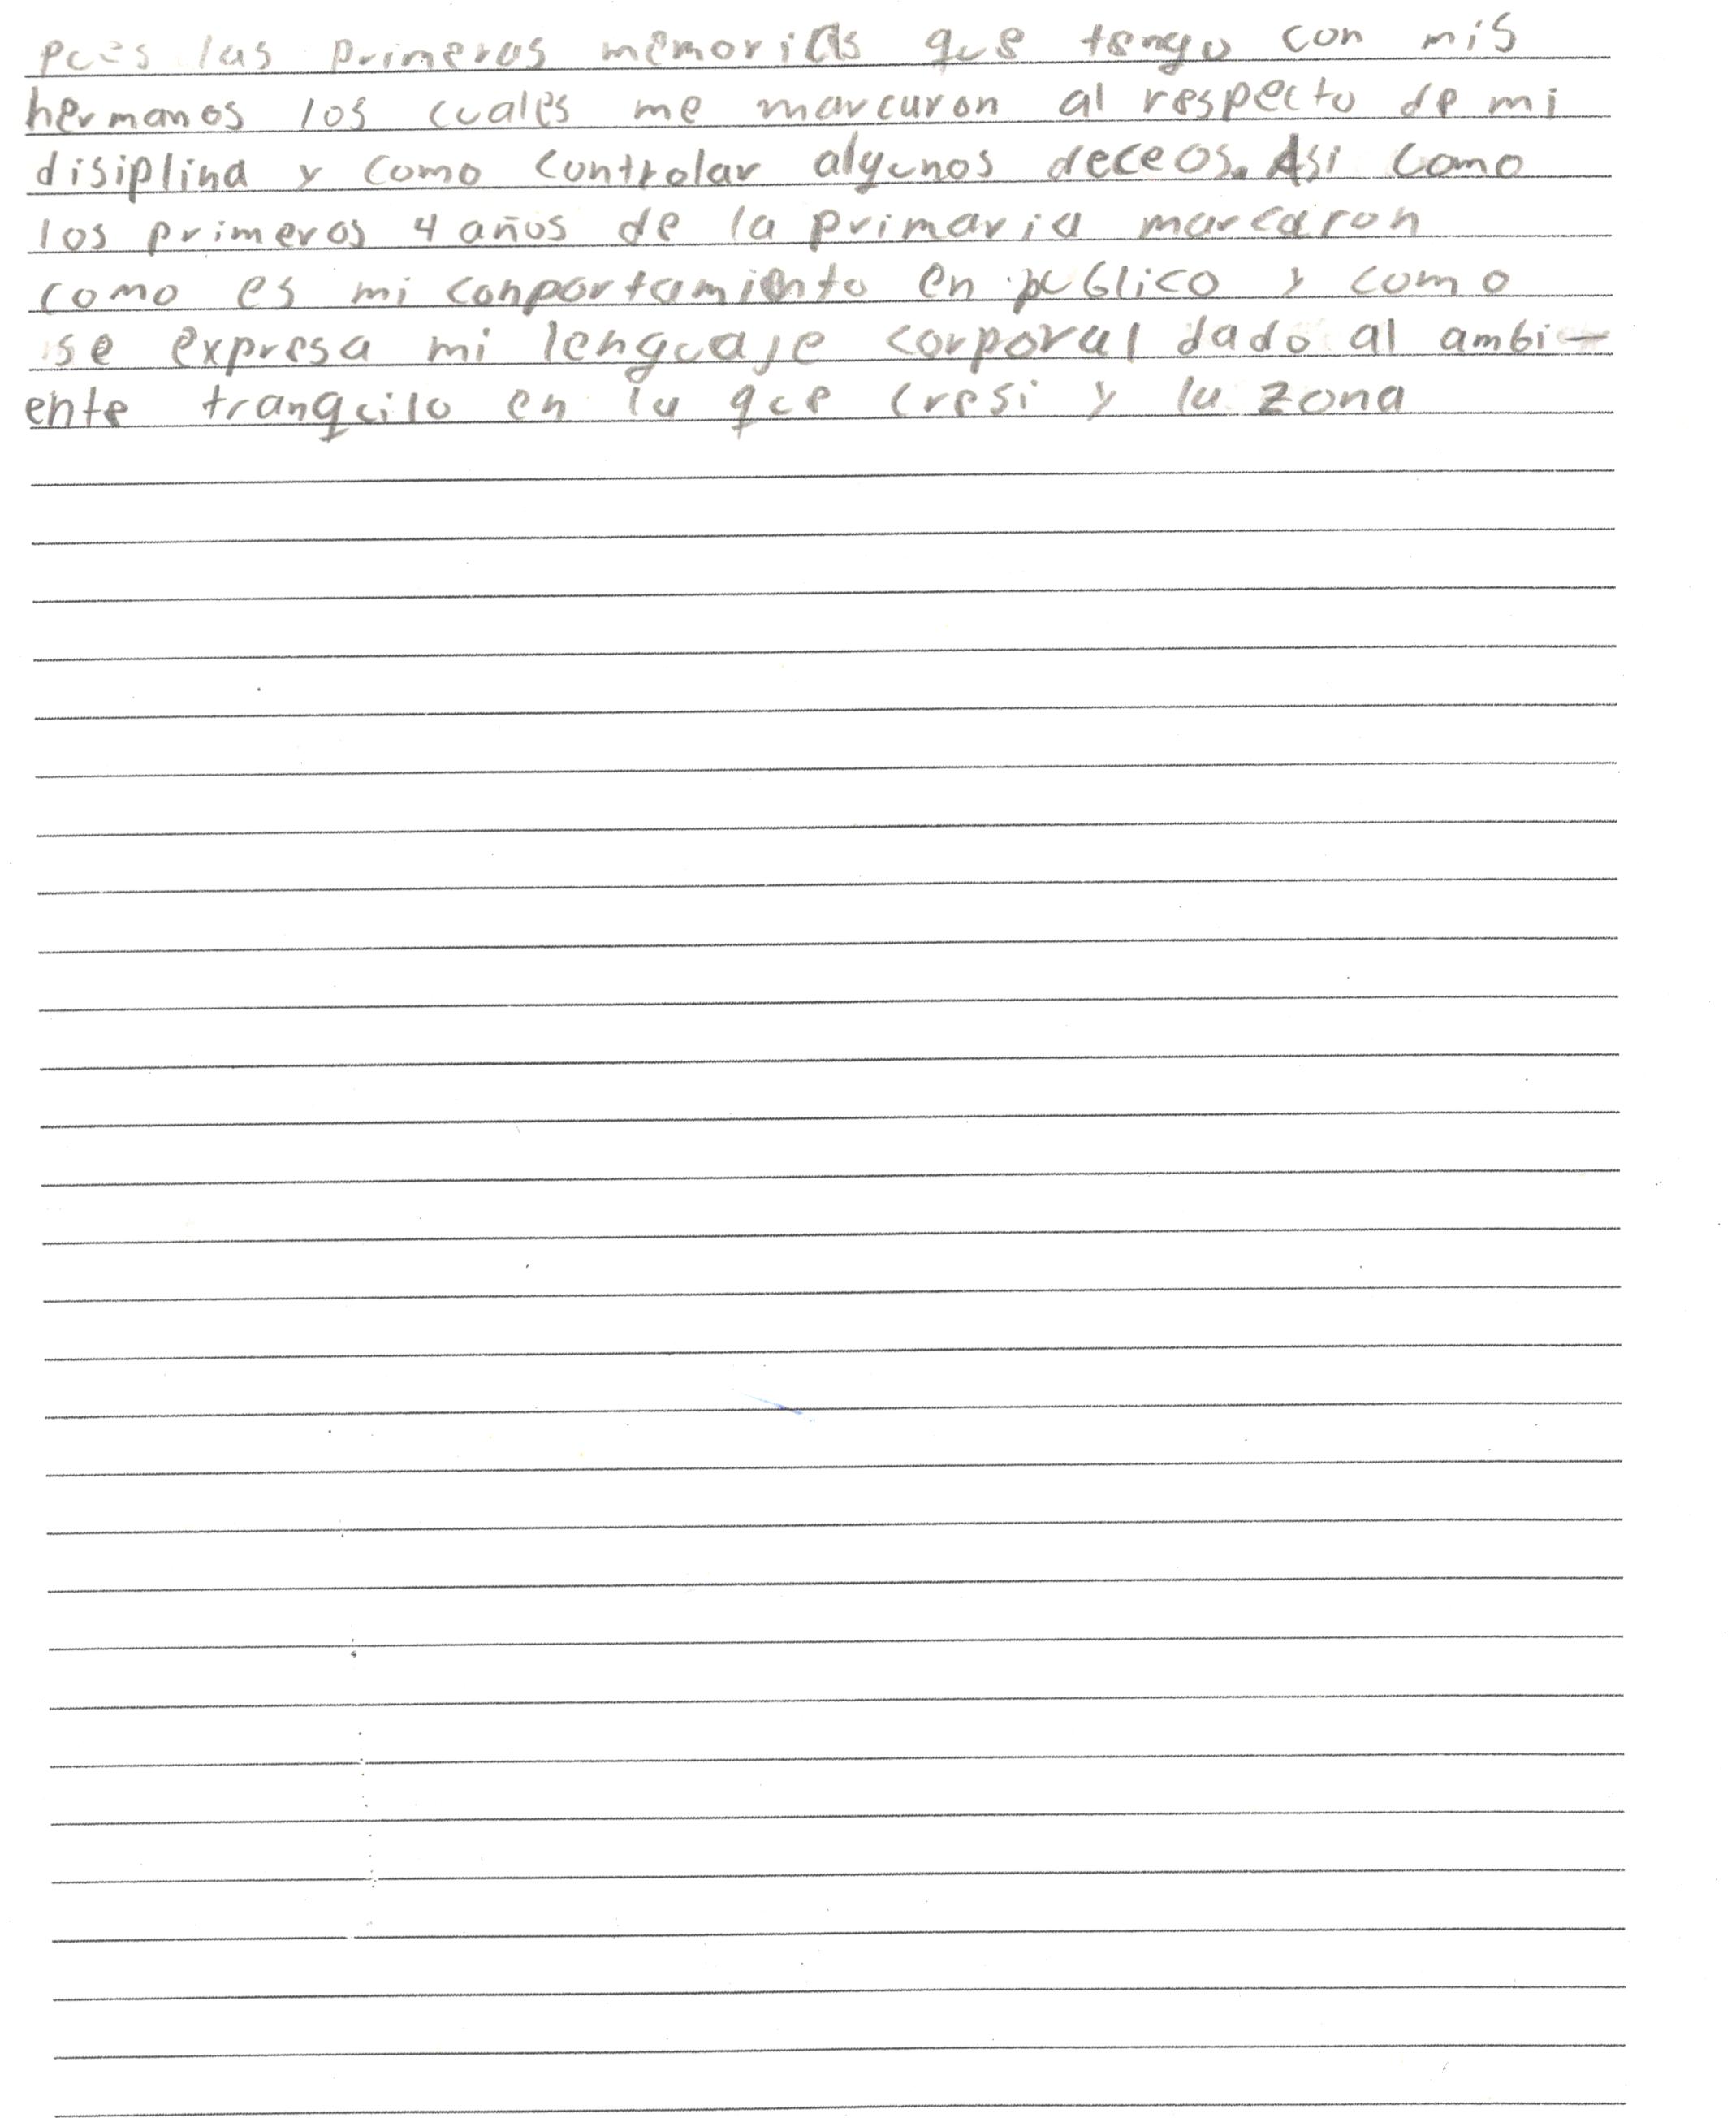 pues las primeras memorias que tengo con mis
hermanos los cuales me marcaron al respecto de mi
disiplina y como controlar algunos deceos. Asi como
los primeros 4 años de la primaria marcaron
como es mi conportamiento en publico y como
se expresa mi lenguaje corporal dado al ambi-
ente tranquilo en la que cresi y la zona